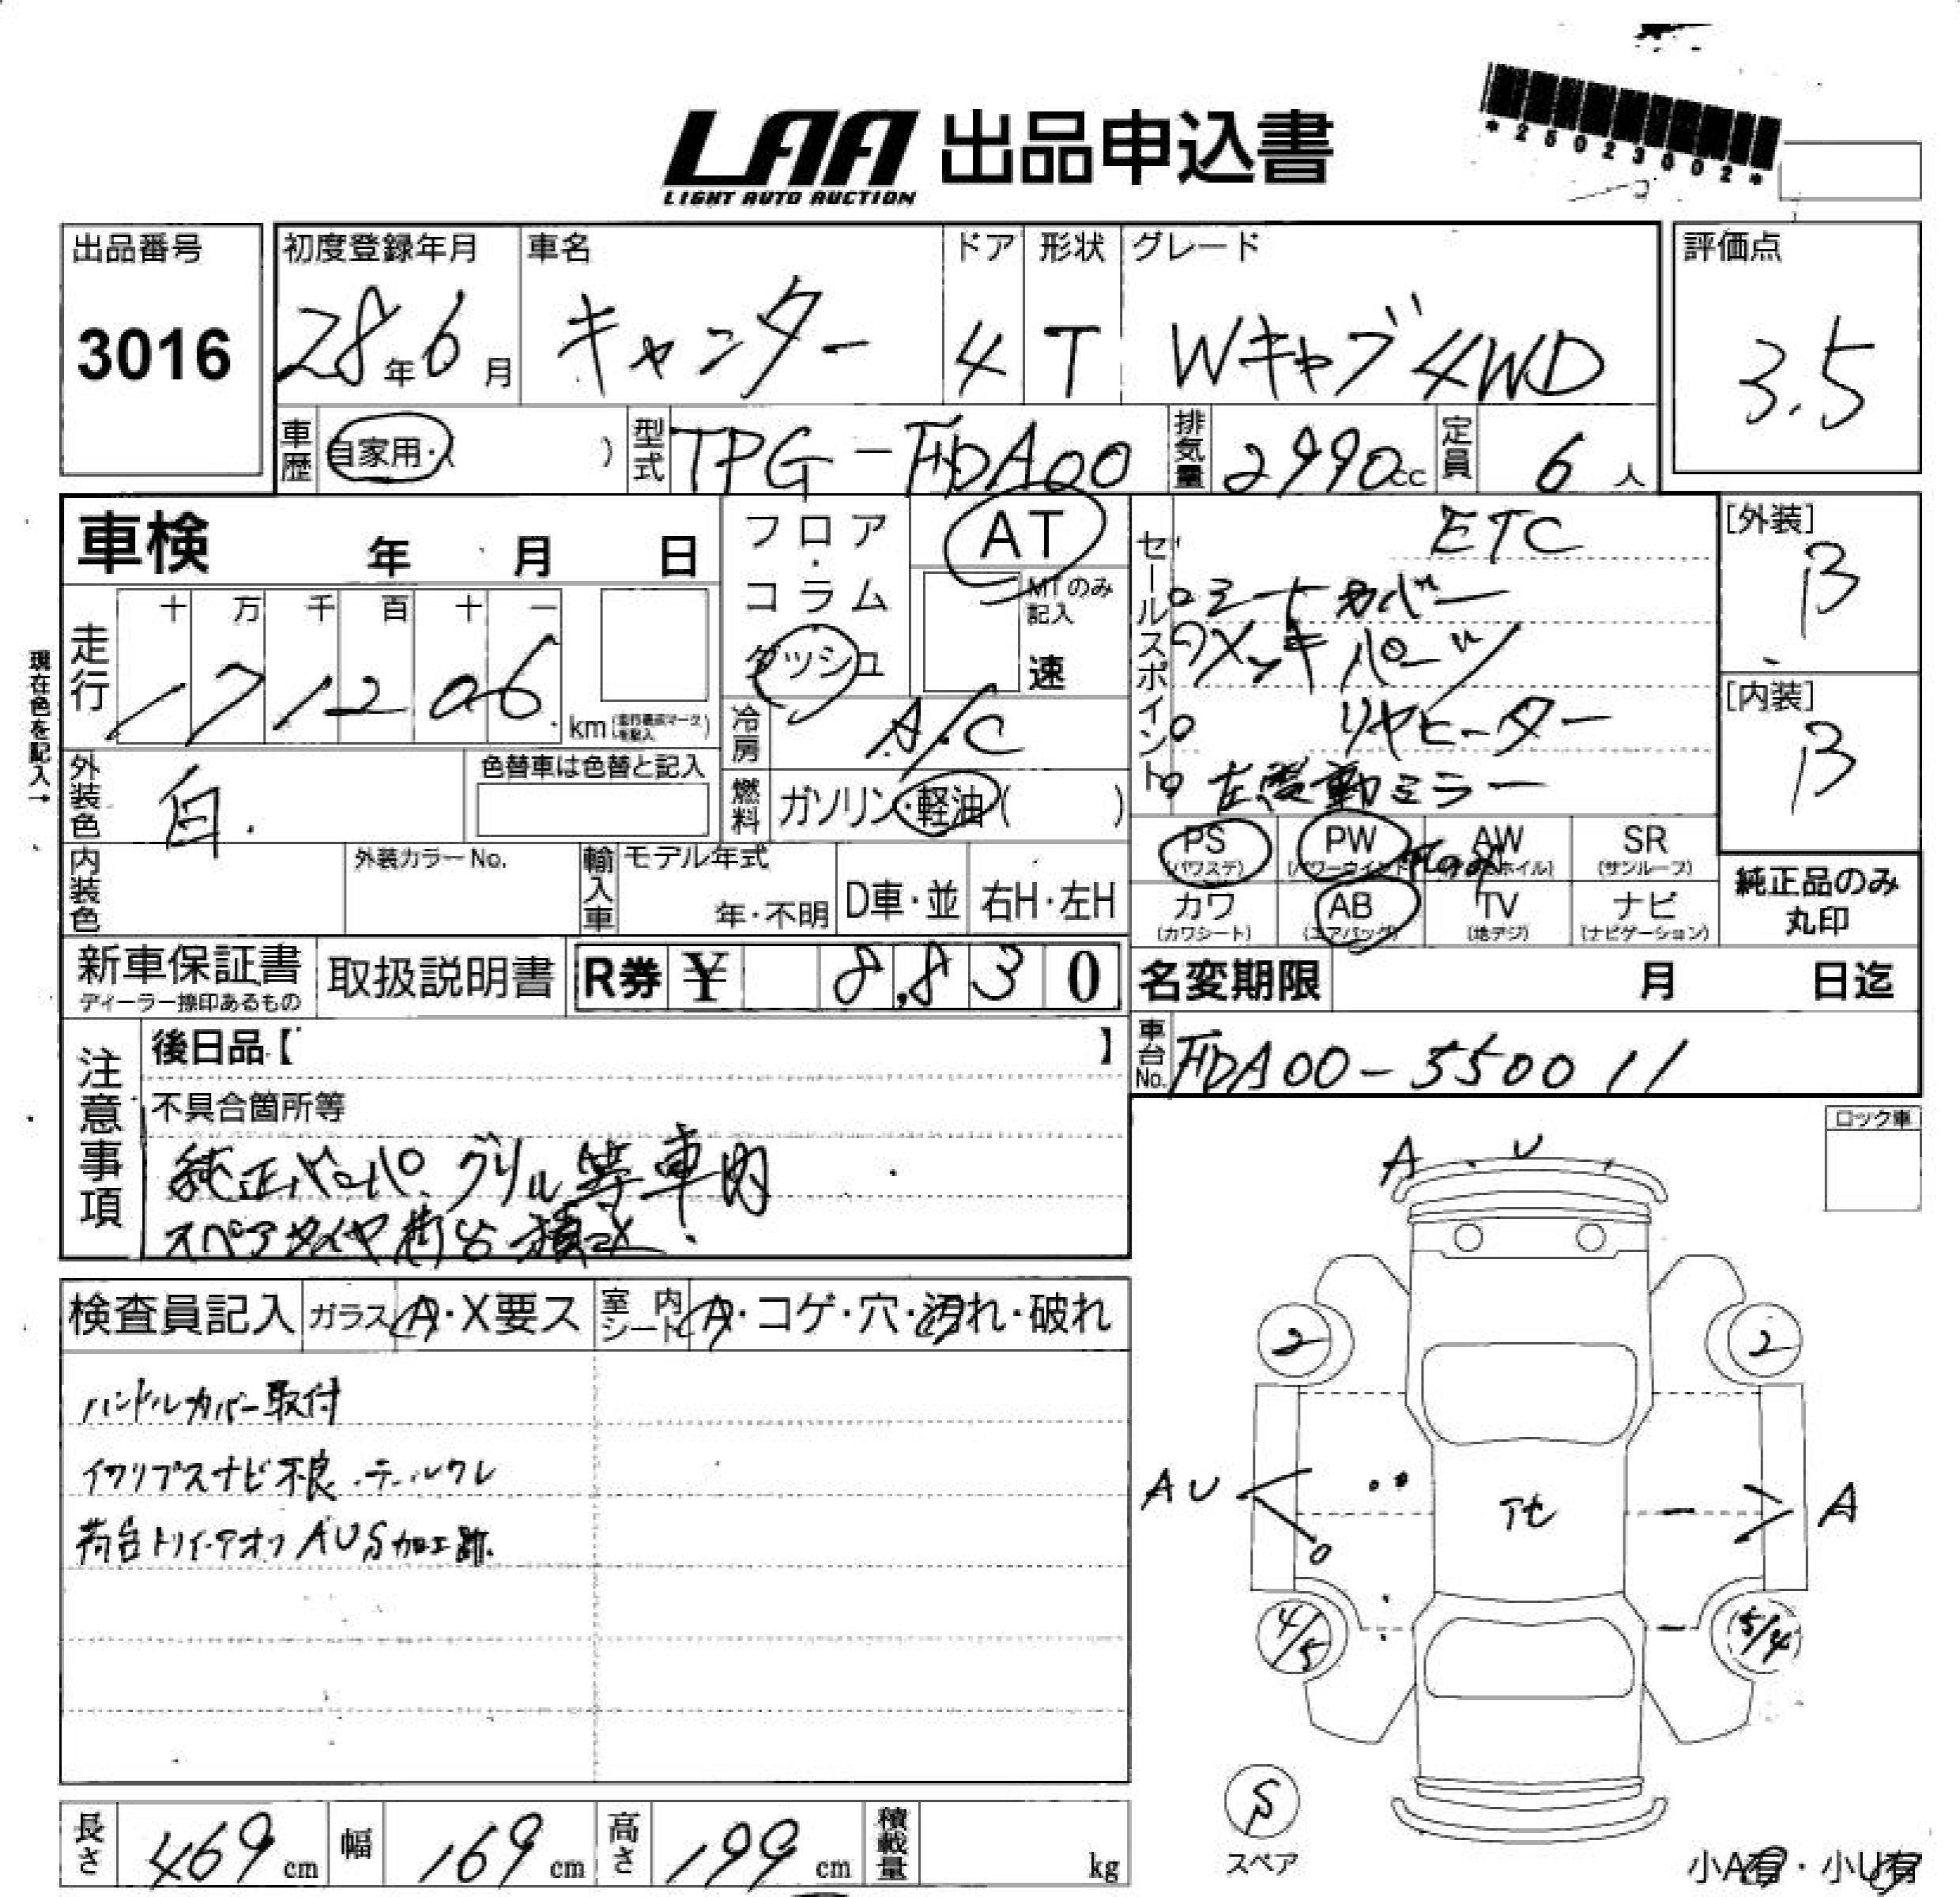 LAA 出品申込書
LIGHT AUTO AUCTION
*25023002*
出品番号
3016
初度登録年月
28年6月
車名
キャンター
ドア
4
形状
T
グレード
Wキャブ4WD
評価点
3.5
車歴
自家用・( )
型式
TPG-FDA00
排気量
2990cc
定員
6人
車検 年 月 日
フロア・コラム
ダッシュ
AT
MTのみ記入
速
セールスポイント
ETC
シートカバー
メッキパーツ
リヤヒーター
左電動ミラー
[外装]
B
[内装]
B
現在色を記入→
走行
十 万 千 百 十 一
171206
km(走行義疑マークを記入)
冷房
A/C
外装色
白
色替車は色替と記入
燃料
ガソリン・軽油( )
PS
(パワステ)
PW
(パワーウインド)
AW
SR
(サンルーフ)
内装色
外装カラーNo.
輸入車
モデル年式
年・不明
D車・並
右H・左H
カワ
(カワシート)
AB
(エアバッグ)
TV
(地デジ)
ナビ
(ナビゲーション)
純正品のみ
丸印
新車保証書
ディーラー捺印あるもの
取扱説明書
R券 ¥ 8,830
名変期限 月 日迄
車台No.
FDA00-550011
注意事項
後日品【 】
不具合箇所等
純正バンパー グリル等車内
スペアタイヤ荷台積込
ロック車
A U
検査員記入
ガラス A・X要ス
室内シート A・コゲ・穴・汚れ・破れ
ハンドルカバー取付
イクリプスナビ不良 テールワレ
荷台トリイ・アオリ AUS加工跡
2 2
AU
A
4/5 5/4
S
スペア
小A有・小U有
長さ 469cm
幅 169cm
高さ 199cm
積載量 kg